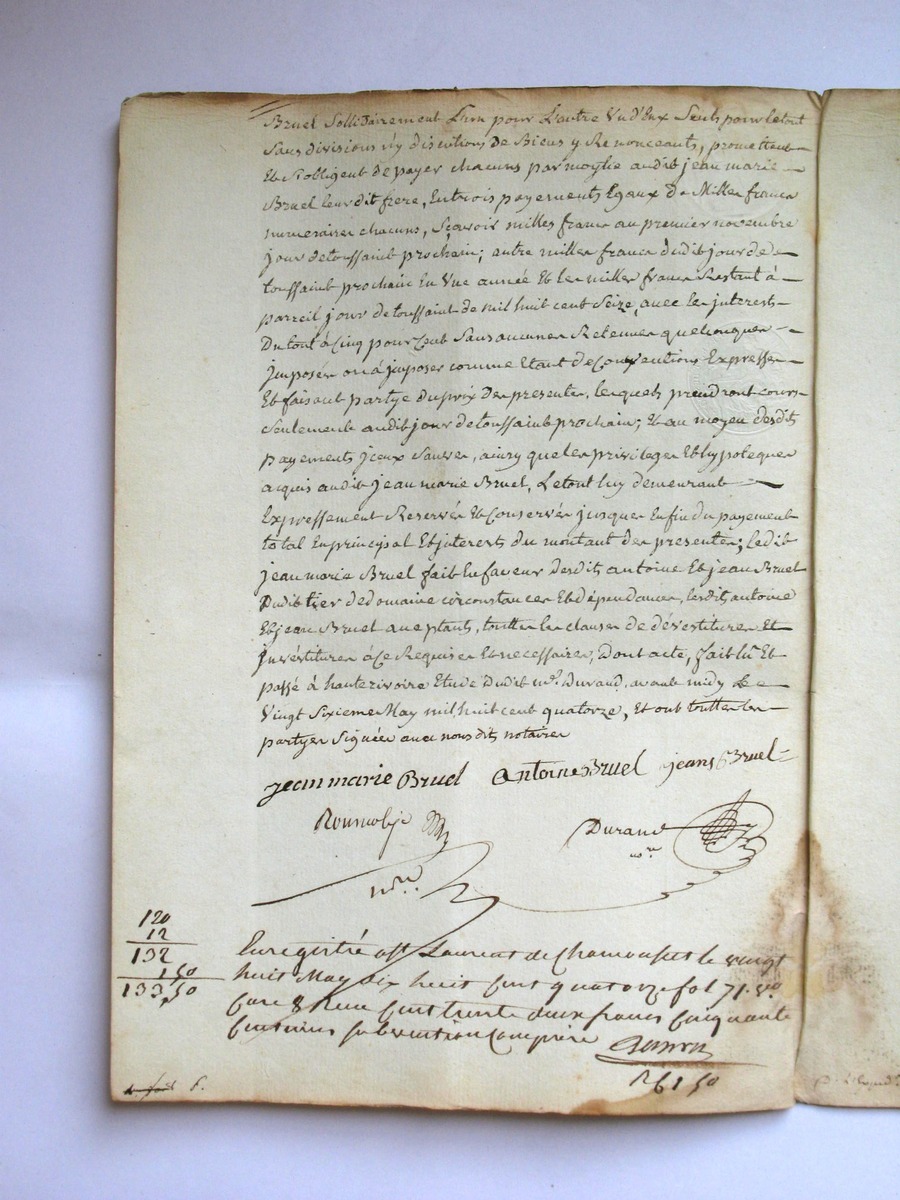 Bruel Sollidairement L'un pour L'autre Un d'Eux Seuls pour le tout
Sans divisions n'y discutions de Biens y Renonceants, promettent
Et S'obligent de payer chacuns par moytie audit jean marie
Bruel leur dit frere, En trois payements Egaux de Miller francs
numeraire chacuns, Sçavoir milles francs au premier novembre
jour de toussaint prochain; autre miller francs dudit jour de
toussaint prochain En Une année Et les miller francs Restant à
pareil jour de toussaint de mil huit cent Seize, avec les interests
Du tout à Cinq pour Cent Sans aucuner Retenuer quelconquer
jmposéer ou à jmposer comme Etant de Conventions Expresser
Et faisant partye du prix der presenter, lesquels prendront cours
Seulement audit jour de toussaint prochain; Et au moyen desdits
payements jceux Sauver, ainsy que ler privileger Et hypotequer
acquis audit jean marie Bruel, Le tout luy demeurant
Expressement Reservér Et Conservér jusquer En fin du payement
total En principal Et jnterests du montant der presenter; ledit
jean marie Bruel fait En faveur desdits antoine Et jean Bruel
Dudit tier de domaine circonstancer Et dépendancer, lesdits antoine
Et jean Bruel aceptants, toutter ler clauser de dévestiturer Et
Jnvéstiturer à Ce Requiser Et necessairer, Dont acte, fait lû Et
passé à hauterivoire Etude Dudit me. Durand, avant midy le
Vingt Sixieme May mil huit cent quatorze, Et ont toutter ler
partyer Signéer avec nous dits notairer
jean marie Bruel Antoine Bruel jean Bruel
Durand
nre
nre
120
12
132
1,50
133,50
Enregistré a St Laurent de Chamousset le vingt
huit May dix huit Cent quatorze fol 71. vo
Case 8 Reçu Cent trente deux francs Cinquante
Centimes subvention Comprise